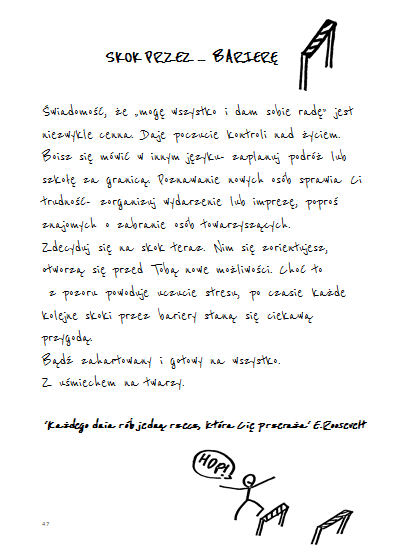 SKOK PRZEZ _ BARIERĘ
Świadomość, że „mogę wszystko i dam sobie radę" jest
niezwykle cenna. Daje poczucie kontroli nad życiem.
Boisz się mówić w innym języku- zaplanuj podróż lub
szkołę za granicą. Poznawanie nowych osób sprawia Ci
trudność- zorganizuj wydarzenie lub imprezę, poproś
znajomych o zabranie osób towarzyszących.
Zdecyduj się na skok teraz. Nim się zorientujesz,
otworzą się przed Tobą nowe możliwości. Choć to
z pozoru powoduje uczucie stresu, po czasie każde
kolejne skoki przez bariery staną się ciekawą
przygodą.
Bądź zahartowany i gotowy na wszystko.
Z uśmiechem na twarzy.
'Każdego dnia rób jedną rzecz, która Cię przeraża' E.Roosevelt
HOP!
47